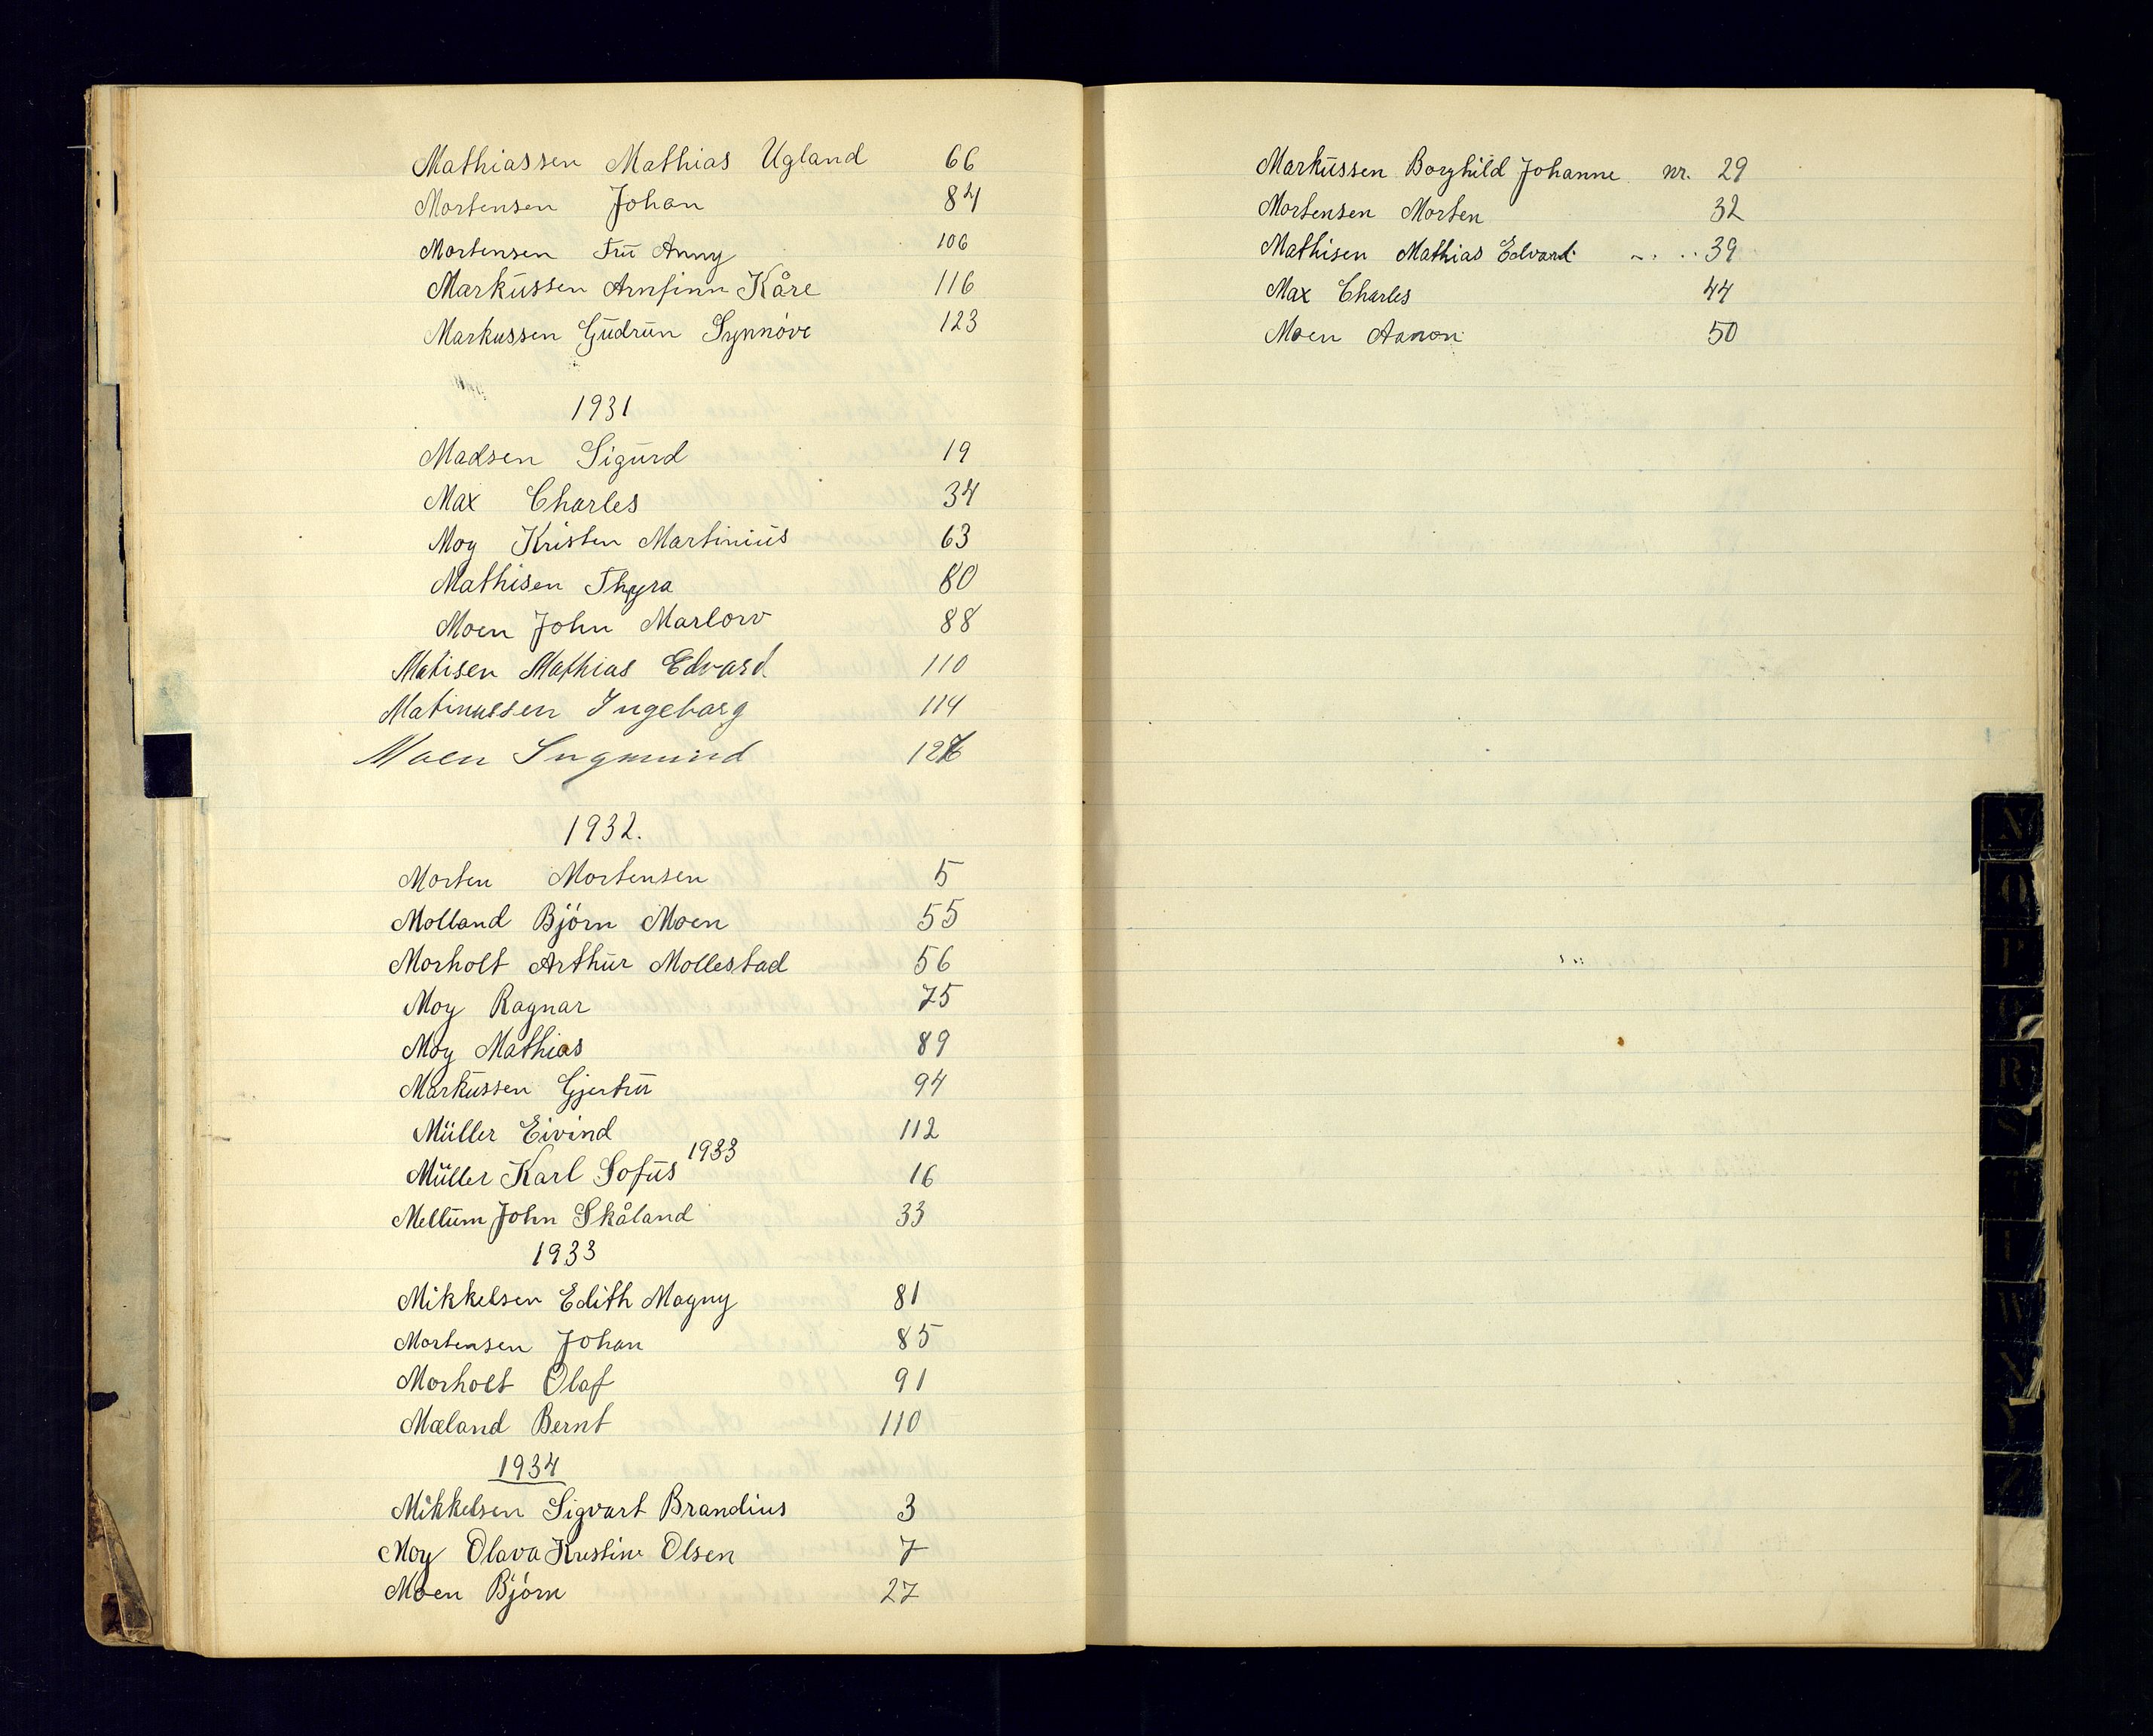 Mathiassen Mathias Ugland 66
Mortensen Johan 84
Mortensen Fru Anny 106
Markussen Arnfinn Kåre 116
Markussen Gudrun Synnöve 123
1931
Madsen Sigurd 19
Max Charles 34
Moy Kristen Martinius 63
Mathisen Thyra 80
Moen John Marlow 88
Matisen Mathias Edvard 110
Matinussen Ingeborg 114
Moen Ingmund
1932.
Morten Mortensen 5
Molland Björn Moen 55
Morholt Arthur Mollestad 56
Moy Ragnar 75
Moy Mathias 89
Markussen Gjertru 94
Müller Eivind 112
1933
Müller Karl Sofus 16
Mellum John Skåland 33
1933
Mikkelsen Edith Magny 81
Mortensen Johan 85
Morholt Olaf 91
Mæland Bernt 110
1934
Mikkelsen Sigvart Brandius 3
Moy Olava Kristine Olsen 7
Moen Björn 27
Markussen Borghild Johanne nr. 29
Mortensen Morten 32
Mathisen Mathias Edvard 39
Max Charles 44
Moen Aanon 50